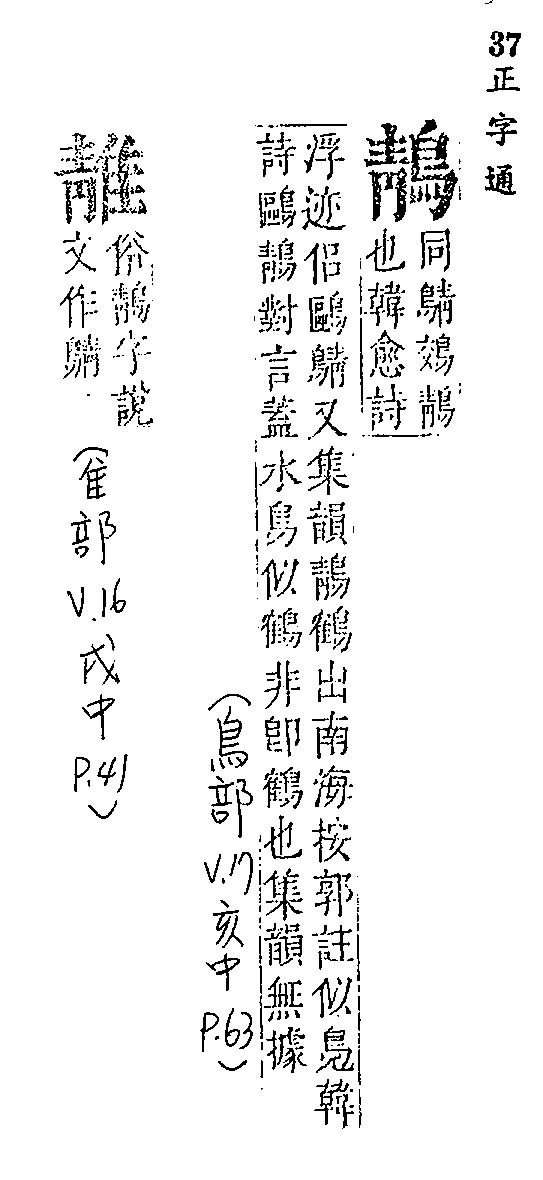 37 正字通
鶄
同鶄鵁鶄
也韓愈詩
浮迹侶鷗鶄又集韻鶄鶴出南海按郭註似鳧韓
詩鷗鶄對言蓋水鳥似鶴非卽鶴也集韻無據
(鳥部 V.17 亥中 P.63)
俗鶄字說
文作鶄
(隹部 V.16 戌中 P.41)